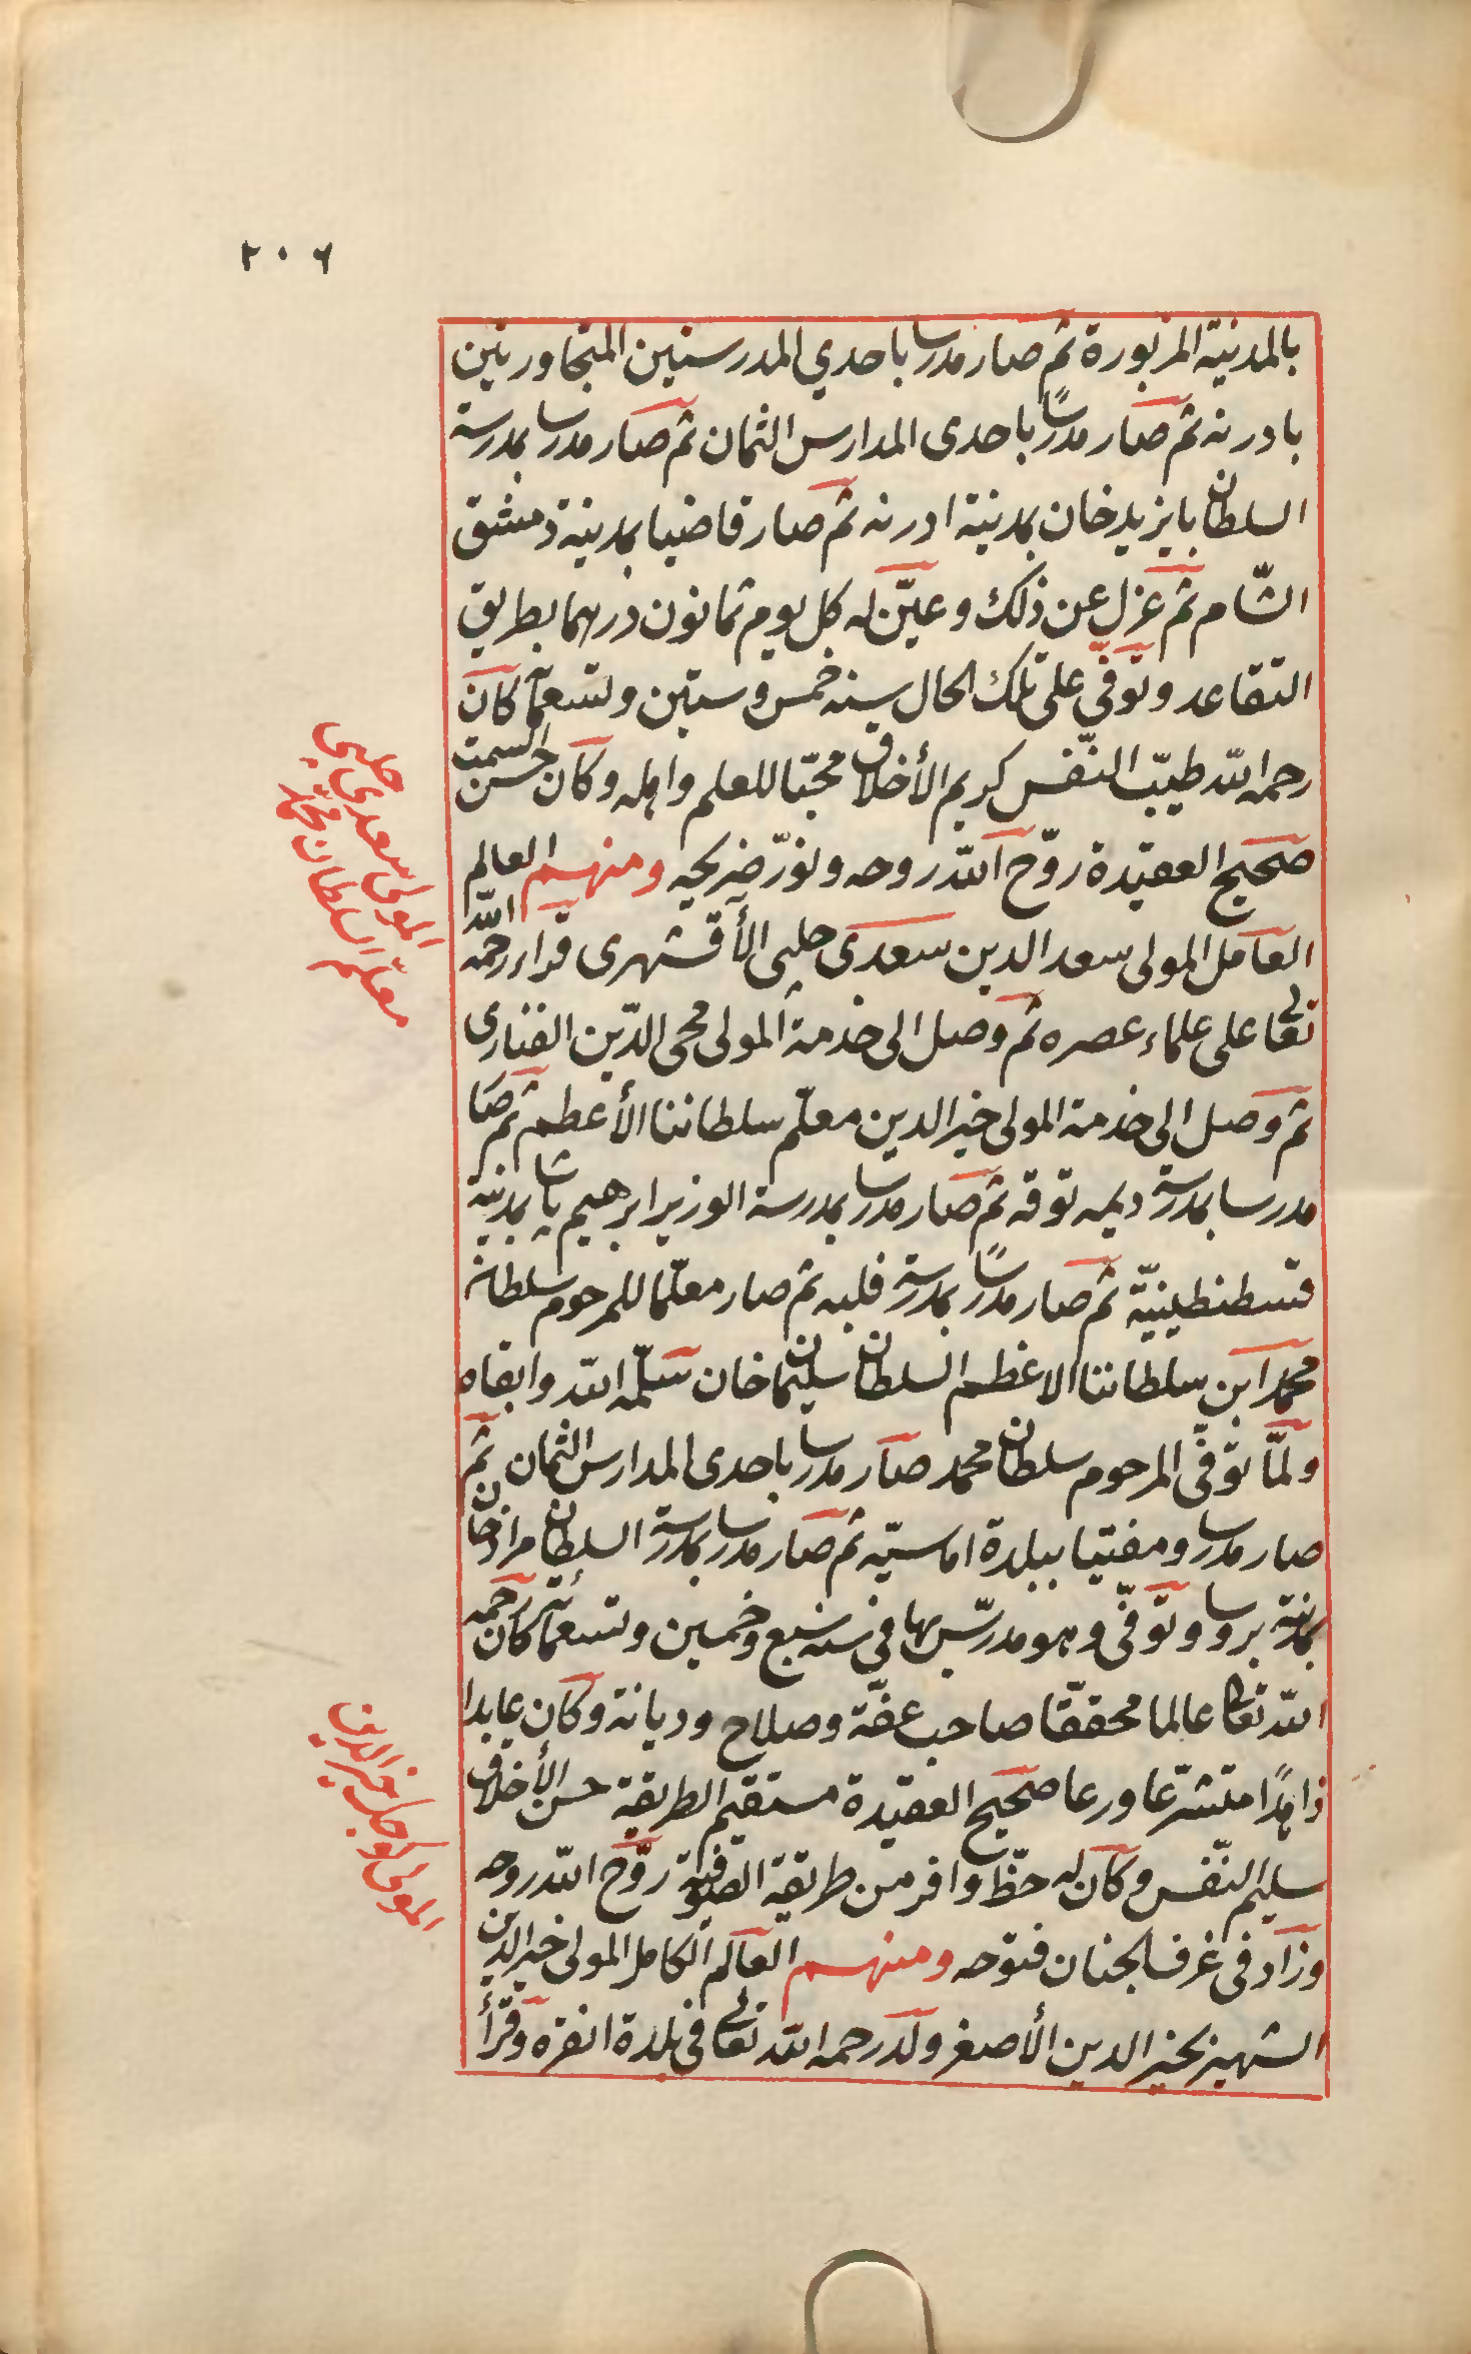 ٢٠٦
بالمدينة المزبورة ثم صار مدرسا باحدي المدرستين المتجاورتين
بادرنه ثم صار مدرسًا باحدى المدارس الثمان ثم صار مدرسا بمدرسة
السلطان بايزيد خان بمدينة ادرنه ثم صار قاضيا بمدينة دمشق
الشّام ثم عزل عن ذلك وعيّن له كل يوم ثمانون درهما بطريق
التقاعد وتوفّي على تلك الحال سنه خمس وستين وتسعمأة كان
رحمه الله طيّب النّفس كريم الأخلاق محبّا للعلم واهله وكان حسن السمت
صحيح العقيدة روّح الله روحه ونوّر ضريحه ومنهم العالم
العامل المولى سعد الدين سعدى چلبى الأقشهرى قراء رحمه الله
تعالى على علماء عصره ثم وصل الى خدمة المولى محى الدّين الفنارى
ثم وصل الى خدمة المولى خير الدين معلّم سلطاننا الأعظم ثم صا
مدرسا بمدرسة ديمه توقه ثم صار مدرسا بمدرسة الوزير ابرهيم پاشا بمدينة
قسطنطينيّة ثم صار مدرسًا بمدرسة فلبه ثم صار معلّما للمرحوم سلطان
محمد ابن سلطاننا الاعظم السلطان سليمان خان سلّمه الله وابقاه
ولمّا توفّى المرحوم سلطان محمد صار مدرسا باحدى المدارس الثمان ثم
صار مدرسا ومفتيا ببلدة اماسيّه ثم صار مدرسا بمدرسة السلطان مراد خان
بمدينة بروسا وتوفّى وهو مدرّس بها فى سنه سبع وخمسين وتسعمائة كان رحمه
الله تعالى عالما محققّا صاحب عفّة وصلاح وديانة وكان عابدا
زاهدًا متشرّعا ورعا صحيح العقيدة مستقيم الطريقة حسن الأخلاق
سليم النّفس وكان له حظّ وافر من طريقة الصّوفية روّح الله روحه
وزاد فى غرف الجنان فتوحه ومنهم العالم الكامل المولى خير الدين
الشهير بخير الدين الأصغر ولد رحمه الله تعالى فى بلدة انقره وقرأ
المولى سعدى چلبى
معلّم السلطان محمد
المولى كوجك خير الدين